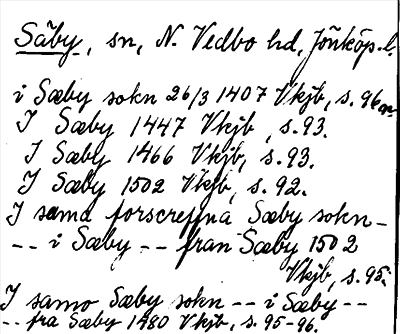 Säby, sn, N. Vedbo hd, Jönköp. l.
i Sæby sokn 26/3 1407 Vkjb, s. 96
I Sæby 1447 Vkjb, s. 93.
I Sæby 1466 Vkjb, s. 93.
I Sæby 1502 Vkjb, s. 92.
I sama forscreffna Sæby sokn -
-- i Sæby -- fran Sæby 1502
Vkjb, s. 95.
I samo Sæby sokn -- i Sæby --
-- fra Sæby 1480 Vkjb, s. 95-96.